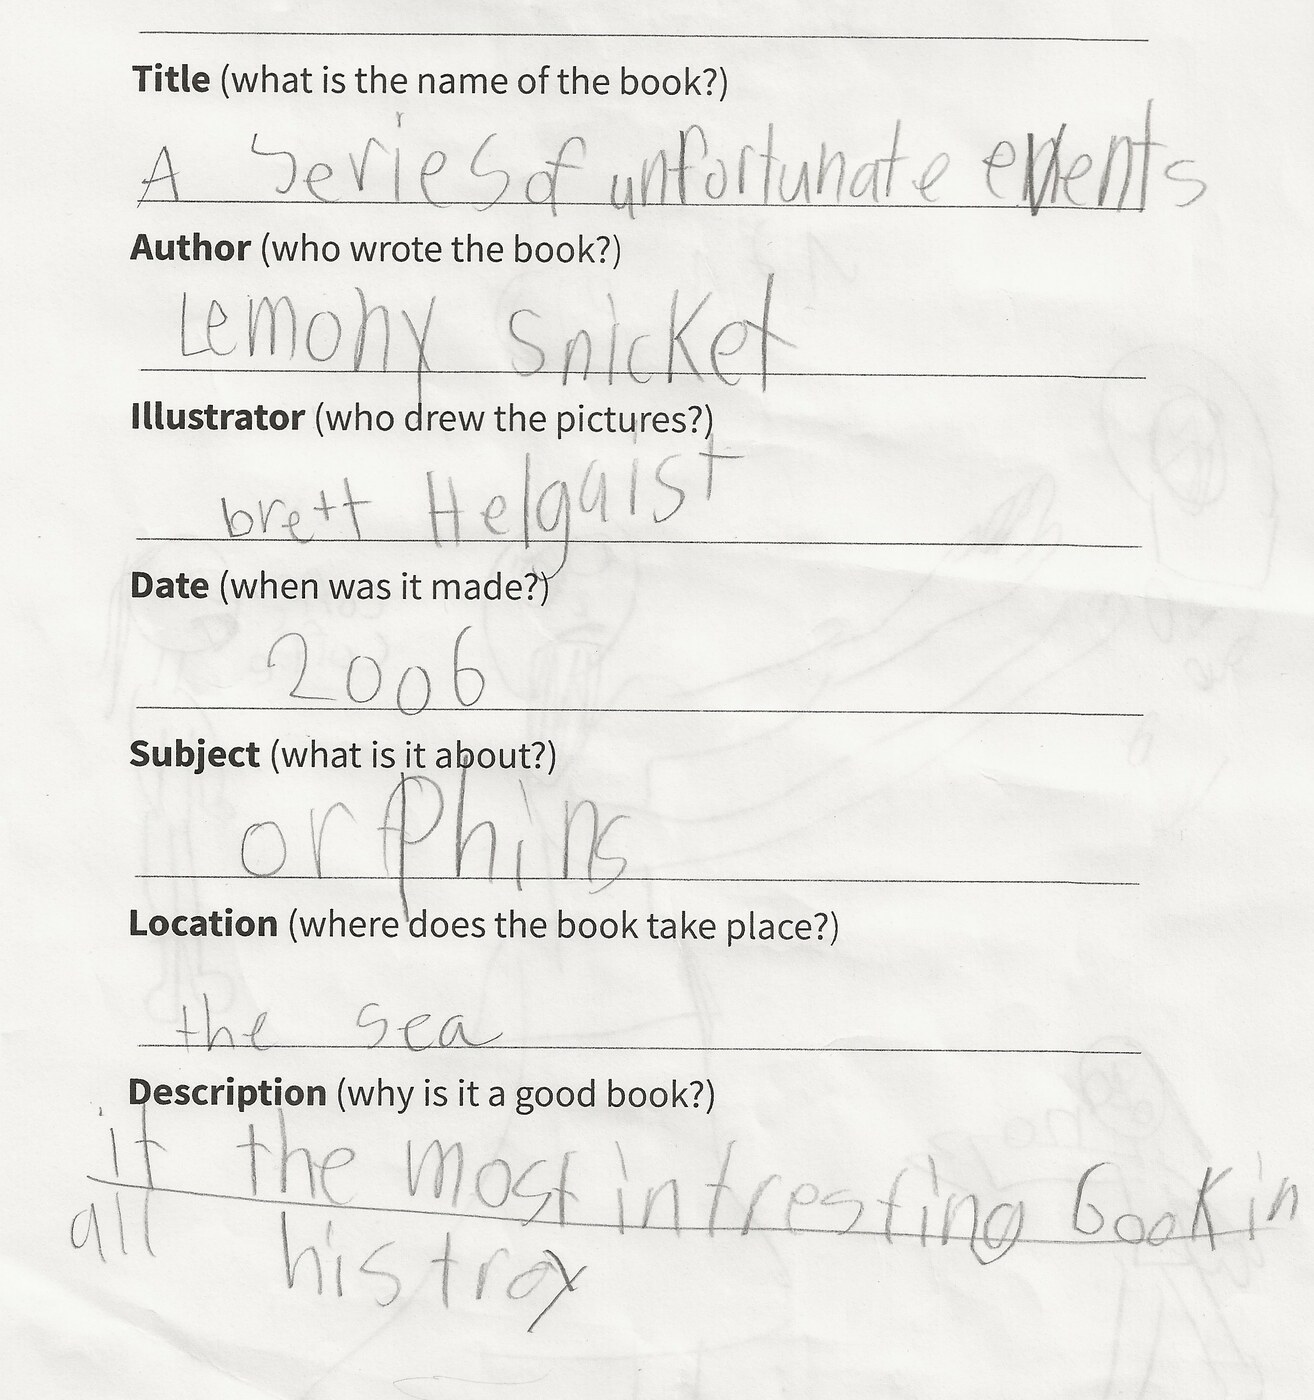 Title (what is the name of the book?)
A Series of unfortunate events
Author (who wrote the book?)
Lemony Snicket
Illustrator (who drew the pictures?)
brett Helquist
Date (when was it made?)
2006
Subject (what is it about?)
orphins
Location (where does the book take place?)
the sea
Description (why is it a good book?)
it the most intresting book in
all histroy